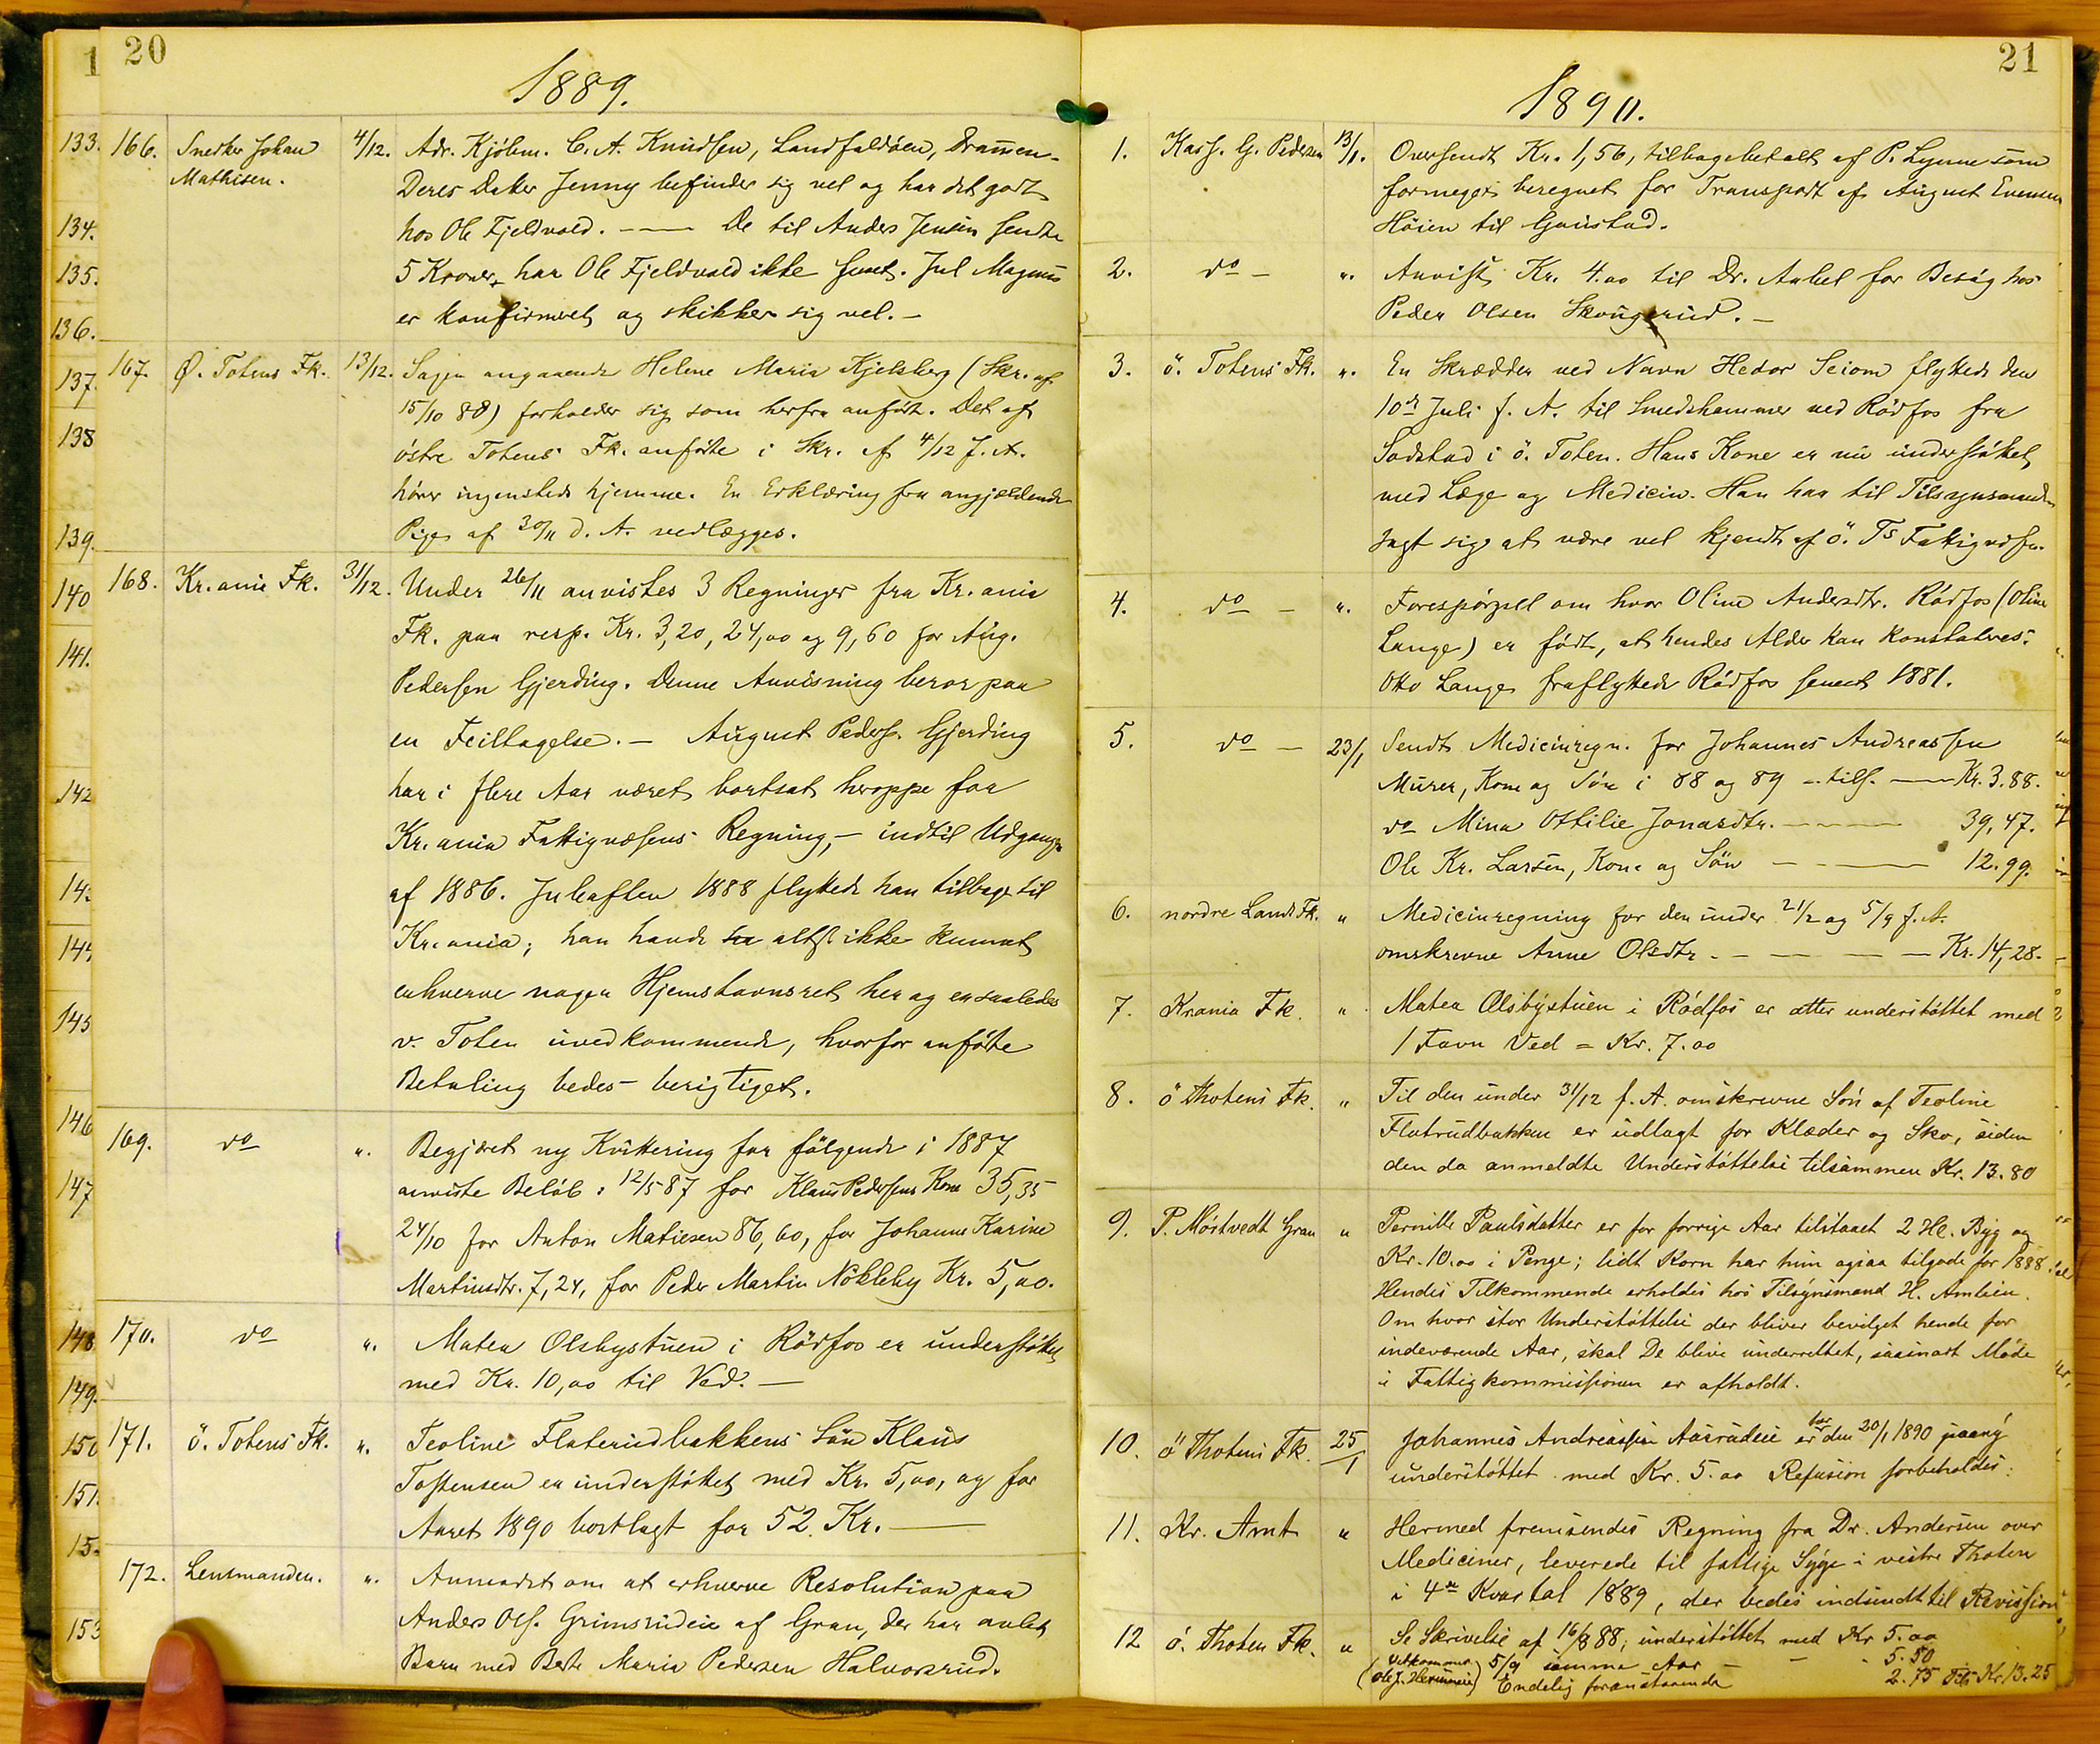 20
1889.
133.
134.
135.
136.
137.
138
139.
140
141.
142
145
146
147
148
149.
150
151.
153
166. Snedker Johan 4/12. Adr. Kjöbm. C. A. Knudsen, Landfaldöen, Drammen.
Mathisen. Deres Datter Jenny befinder sig vel og har det godt
hos Ole Fjeldvold. — De til Anders Jensen sendte
5 Kroner, har Ole Fjeldvold ikke faaet. Jul Magnus
er konfirmeret og skikker sig vel. —
167. Ø. Totens Fk. 13/12. Sagen angaaende Helene Maria Kjelsberg (Skr. af
15/10 88) forholder sig som herfra anfört. Det af
östre Totens Fk. anförte i Skr. af 4/12 f. A.
hörer ingensteds hjemme. En Erklæring fra angjældende
Pige af 30/11 d. A. vedlægges.
168. Kr.ania Fk. 31/12. Under 26/11 anvistes 3 Regninger fra Kr.ania
Fk. paa resp. Kr. 3,20, 24,00 og 9,60 for Aug.
Pedersen Gjerding. Denne Anvisning beror paa
en Feiltagelse. — August Peders. Gjerding
har i flere Aar været bortsat heroppe for
Kr.ania Fattigvæsens Regning, — indtil Udgangen
af 1886. Juleaften 1888 flyttede han tilbage til
Kr.ania; han havde altsaa ikke kunnet
erhverve nogen Hjemstavnsret her og er saaledes
v. Toten uvedkommende, hvorfor anförte
Betaling bedes berigtiget.
169. do ". Begjæret ny Kvittering for fölgende i 1887
anviste Belöb: 12/5 87 for Klaus Pedersens Kone 35,35
24/10 for Anton Matiesen 86,60, for Johanne Karine
Martinsdtr. 7,24, for Peder Martin Nökleby Kr. 5,00.
170. do ". Matea Olsbystuen i Rödfos er understöttet
med Kr. 10,00 til Ved. —
171. ö. Totens Fk. ". Teoline Flaterudbakkens Sön Klaus
Tostensen er understöttet med Kr. 5,00, og for
Aaret 1890 bortlagt for 52 Kr. —
172. Lensmanden. ". Anmodet om at erhverve Resolution paa
Anders Ols. Grimsrudeie af Gran, der har avlet
Barn med Berte Maria Pedersen Halvorsrud.
21
1890.
1. Kass. G. Pedersen 13/1. Oversendt Kr. 1,56, tilbagebetalt af P. Lynne som
formeget beregnet for Transport af August Evensen
Höien til Gaustad.
2. do — ". Anvist Kr. 4.00 til Dr. Aubel for Besög hos
Peder Olsen Skougerud. —
3. ö. Totens Fk. ". En Skrædder ved Navn Hedor Seiom flyttede den
10de Juli f. A. til Smedshammer ved Rödfos fra
Sodstad i ö. Toten. Hans Kone er nu understöttet
med Læge og Medicin. Han har til Tilsynsmanden
sagt sig at være vel kjendt af ö. Ts Fattigvæsen.
4. do — ". Forespörgsel om hvor Oline Andersdtr. Rödfos (Oline
Lange) er födt, at hendes Alder kan konstateres.
Otto Lange fraflyttede Rödfos senest 1881.
5. do — 23/1 Sendt Medicinregn. for Johannes Andreassen
Murer, Kone og Sön i 88 og 89 = tils. — Kr. 3.88.
do Mina Ottilie Jonasdtr. — 39,47.
Ole Kr. Larsen, Kone og Sön — 12.99.
6. nordre Lands Fk. " Medicinregning for den under 21/2 og 5/9 f. A.
omskrevne Anne Olsdtr. — — — Kr. 14,28.
7. Krania Fk. " Matea Olsbystuen i Rödfos er atter understöttet med
1 Favn Ved = Kr. 7.00
8. ö Thotens Fk. " Til den under 31/12 f. A. omskrevne Sön af Teoline
Flatrudbakken er udlagt for Klæder og Sko, siden
den da anmeldte Understöttelse tilsammen Kr. 13.80
9. P. Möstvedt Gran " Pernille Paulsdatter er for forrige Aar tilstaaet 2 Hl. Byg og
Kr. 10.00 i Penge; lidt Korn har hun ogsaa tilgode for 1888.
Hendes Tilkommende erholdes hos Tilsynsmand H. Amlien.
Om hvor stor Understöttelse der bliver bevilget hende for
indeværende Aar, skal De blive underrettet, saasnart Möde
i Fattigkommissionen er afholdt.
10. ö Thotens Fk. 25/1 Johannes Andreassen Aasrudeie er den 20/1 1890 paany
understöttet med Kr. 5.00 Refusion forbeholdes.
11. Kr. Amt " Hermed fremsendes Regning fra Dr. Andersen over
Mediciner, leverede til fattige Syge i vestre Thoten
i 4de Kvartal 1889, der bedes indsendt til Revission
12 ö. Thoten Fk. " Se Skrivelse af 16/8 88; understöttet med Kr 5.00
Vedkommer 5/9 samme Aar — - 5.50
Endelig foranstaaende 2.75 Tils Kr. 13.25